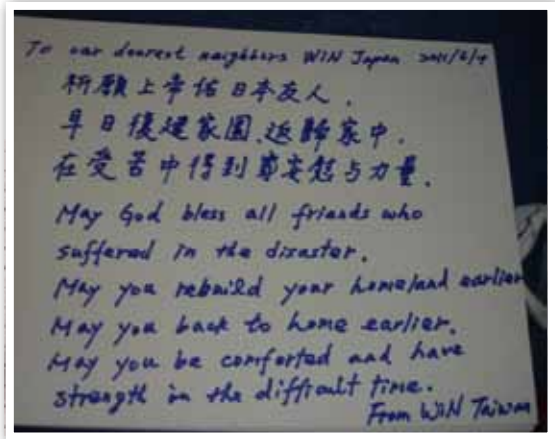 To our dearest neighbors WIN Japan 2011/6/9
祈願上帝佑日本友人.
早日復建家園.返歸家中.
在受苦中得到安慰与力量.
May God bless all friends who
suffered in the disaster.
May you rebuild your homeland earlier
May you back to home earlier.
May you be comforted and have
strength in the difficult time.
From WIN Taiwan